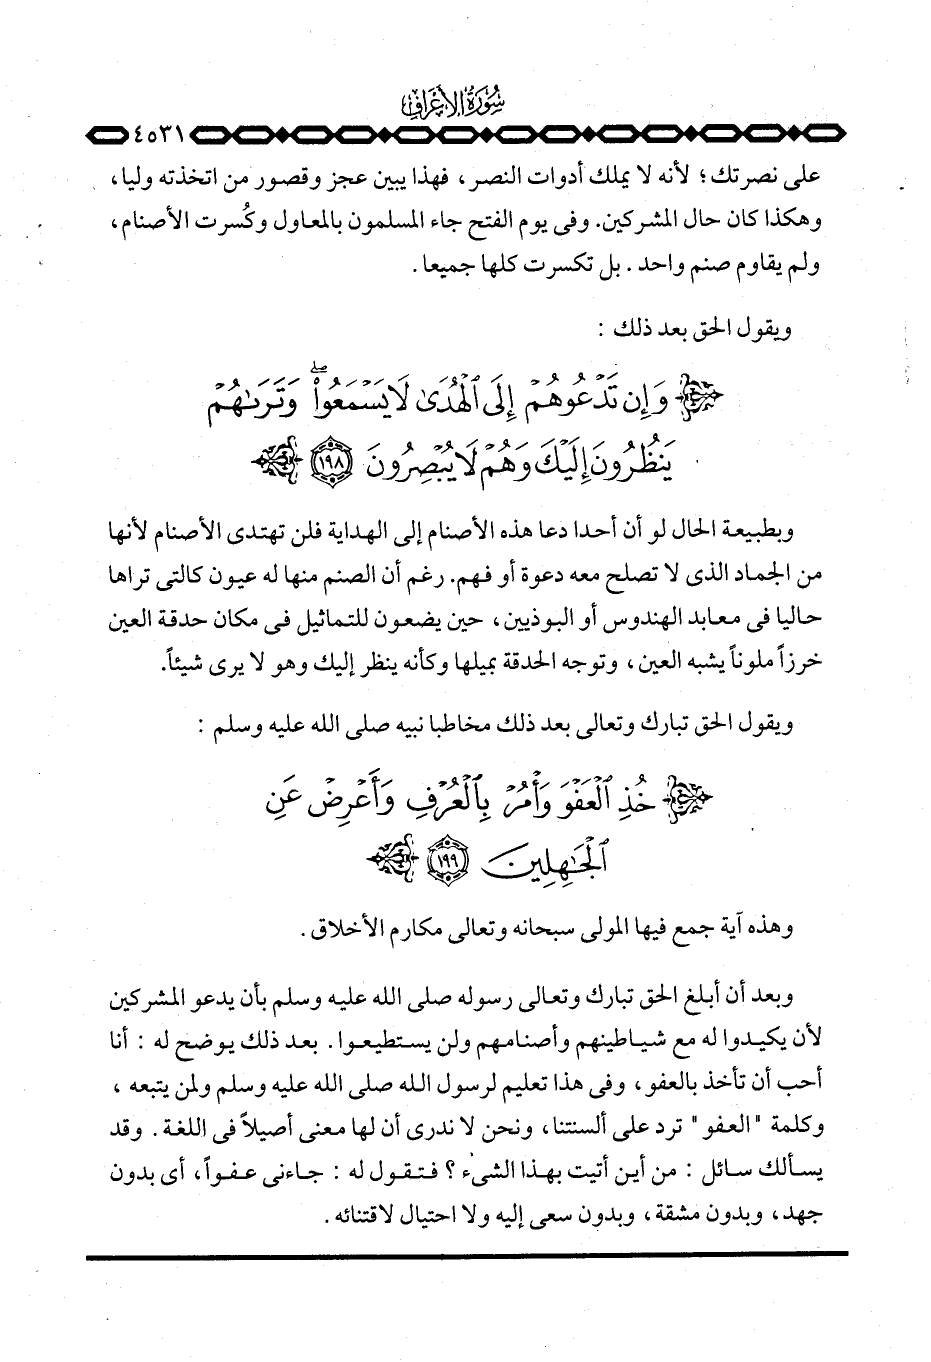 سُورَةُ الأَعْرَافِ
٤٥٣١
على نصرتك؛ لأنه لا يملك أدوات النصر، فهذا يبين عجز وقصور من اتخذته وليا،
وهكذا كان حال المشركين. وفى يوم الفتح جاء المسلمون بالمعاول وكُسرت الأصنام،
ولم يقاوم صنم واحد. بل تكسرت كلها جميعا.
ويقول الحق بعد ذلك :
وَإِن تَدْعُوهُمْ إِلَى ٱلْهُدَىٰ لَا يَسْمَعُوا۟ ۖ وَتَرَىٰهُمْ
يَنظُرُونَ إِلَيْكَ وَهُمْ لَا يُبْصِرُونَ ١٩٨
وبطبيعة الحال لو أن أحدا دعا هذه الأصنام إلى الهداية فلن تهتدى الأصنام لأنها
من الجماد الذى لا تصلح معه دعوة أو فهم. رغم أن الصنم منها له عيون كالتى تراها
حاليا فى معابد الهندوس أو البوذيين، حين يضعون للتماثيل فى مكان حدقة العين
خرزاً ملوناً يشبه العين، وتوجه الحدقة بميلها وكأنه ينظر إليك وهو لا يرى شيئاً.
ويقول الحق تبارك وتعالى بعد ذلك مخاطبا نبيه صلى الله عليه وسلم :
خُذِ ٱلْعَفْوَ وَأْمُرْ بِٱلْعُرْفِ وَأَعْرِضْ عَنِ
ٱلْجَٰهِلِينَ ١٩٩
وهذه آية جمع فيها المولى سبحانه وتعالى مكارم الأخلاق.
وبعد أن أبلغ الحق تبارك وتعالى رسوله صلى الله عليه وسلم بأن يدعو المشركين
لأن يكيدوا له مع شياطينهم وأصنامهم ولن يستطيعوا. بعد ذلك يوضح له : أنا
أحب أن تأخذ بالعفو، وفى هذا تعليم لرسول الله صلى الله عليه وسلم ولمن يتبعه ،
وكلمة "العفو" ترد على ألسنتنا، ونحن لا ندرى أن لها معنى أصيلاً فى اللغة. وقد
يسألك سائل : من أين أتيت بهذا الشىء ؟ فتقول له : جاءنى عفواً، أى بدون
جهد، وبدون مشقة، وبدون سعى إليه ولا احتيال لاقتنائه.